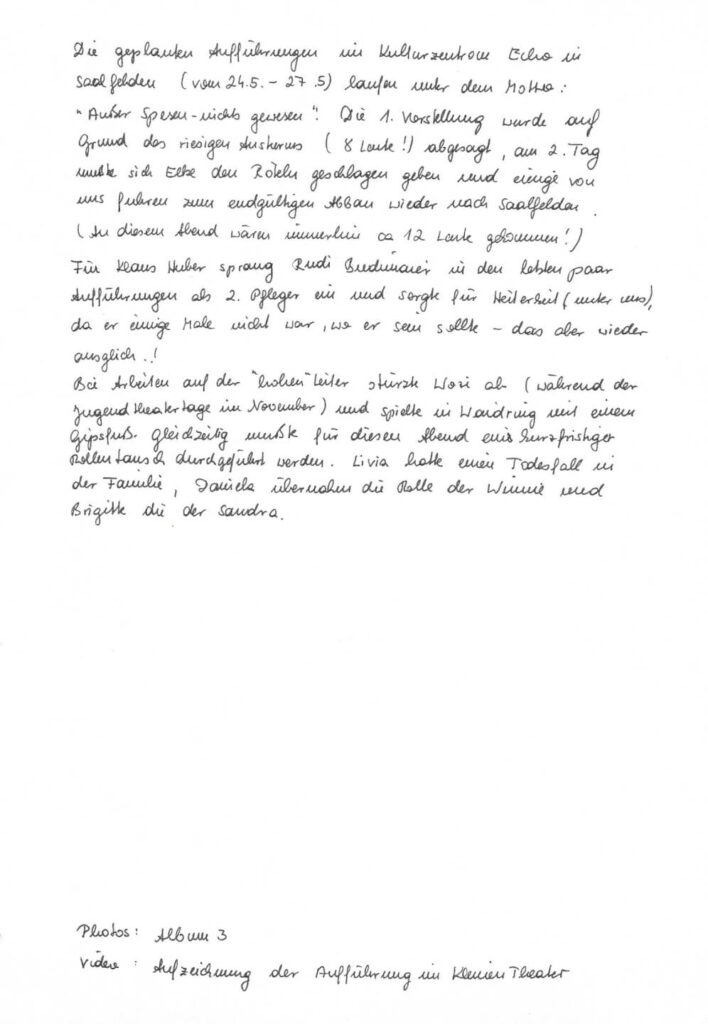 Die geplanten Aufführungen im Kulturzentrum Echo in
Saalfelden (vom 24.5. - 27.5) laufen unter dem Motto:
"Außer Spesen - nichts gewesen". Die 1. Vorstellung wurde auf
Grund des riesigen Ansturms (8 Leute!) abgesagt, am 2. Tag
mußte sich Elke den Röteln geschlagen geben und einige von
uns fuhren zum endgültigen Abbau wieder nach Saalfelden.
(An diesem Abend wären immerhin ca 12 Leute gekommen!)
Für Klaus Huber sprang Rudi in den letzten paar
Aufführungen als 2. Pfleger ein und sorgte für Heiterkeit (unter uns),
da er einige Male nicht war, wo er sein sollte - das aber wieder
ausglich..!
Bei Arbeiten auf der "hohen" Leiter stürzte Wozi ab (während der
Jugendtheatertage im November) und spielte in Waidring mit einem
Gipsfuß. Gleichzeitig mußte für diesen Abend ein kurzfristiger
Rollentausch durchgeführt werden. Livia hatte einen Todesfall in
der Familie, Daniela übernahm die Rolle der Winnie und
Brigitte die der Sandra.
Photos: Album 3
Video: Aufzeichnung der Aufführung im Kleinen Theater